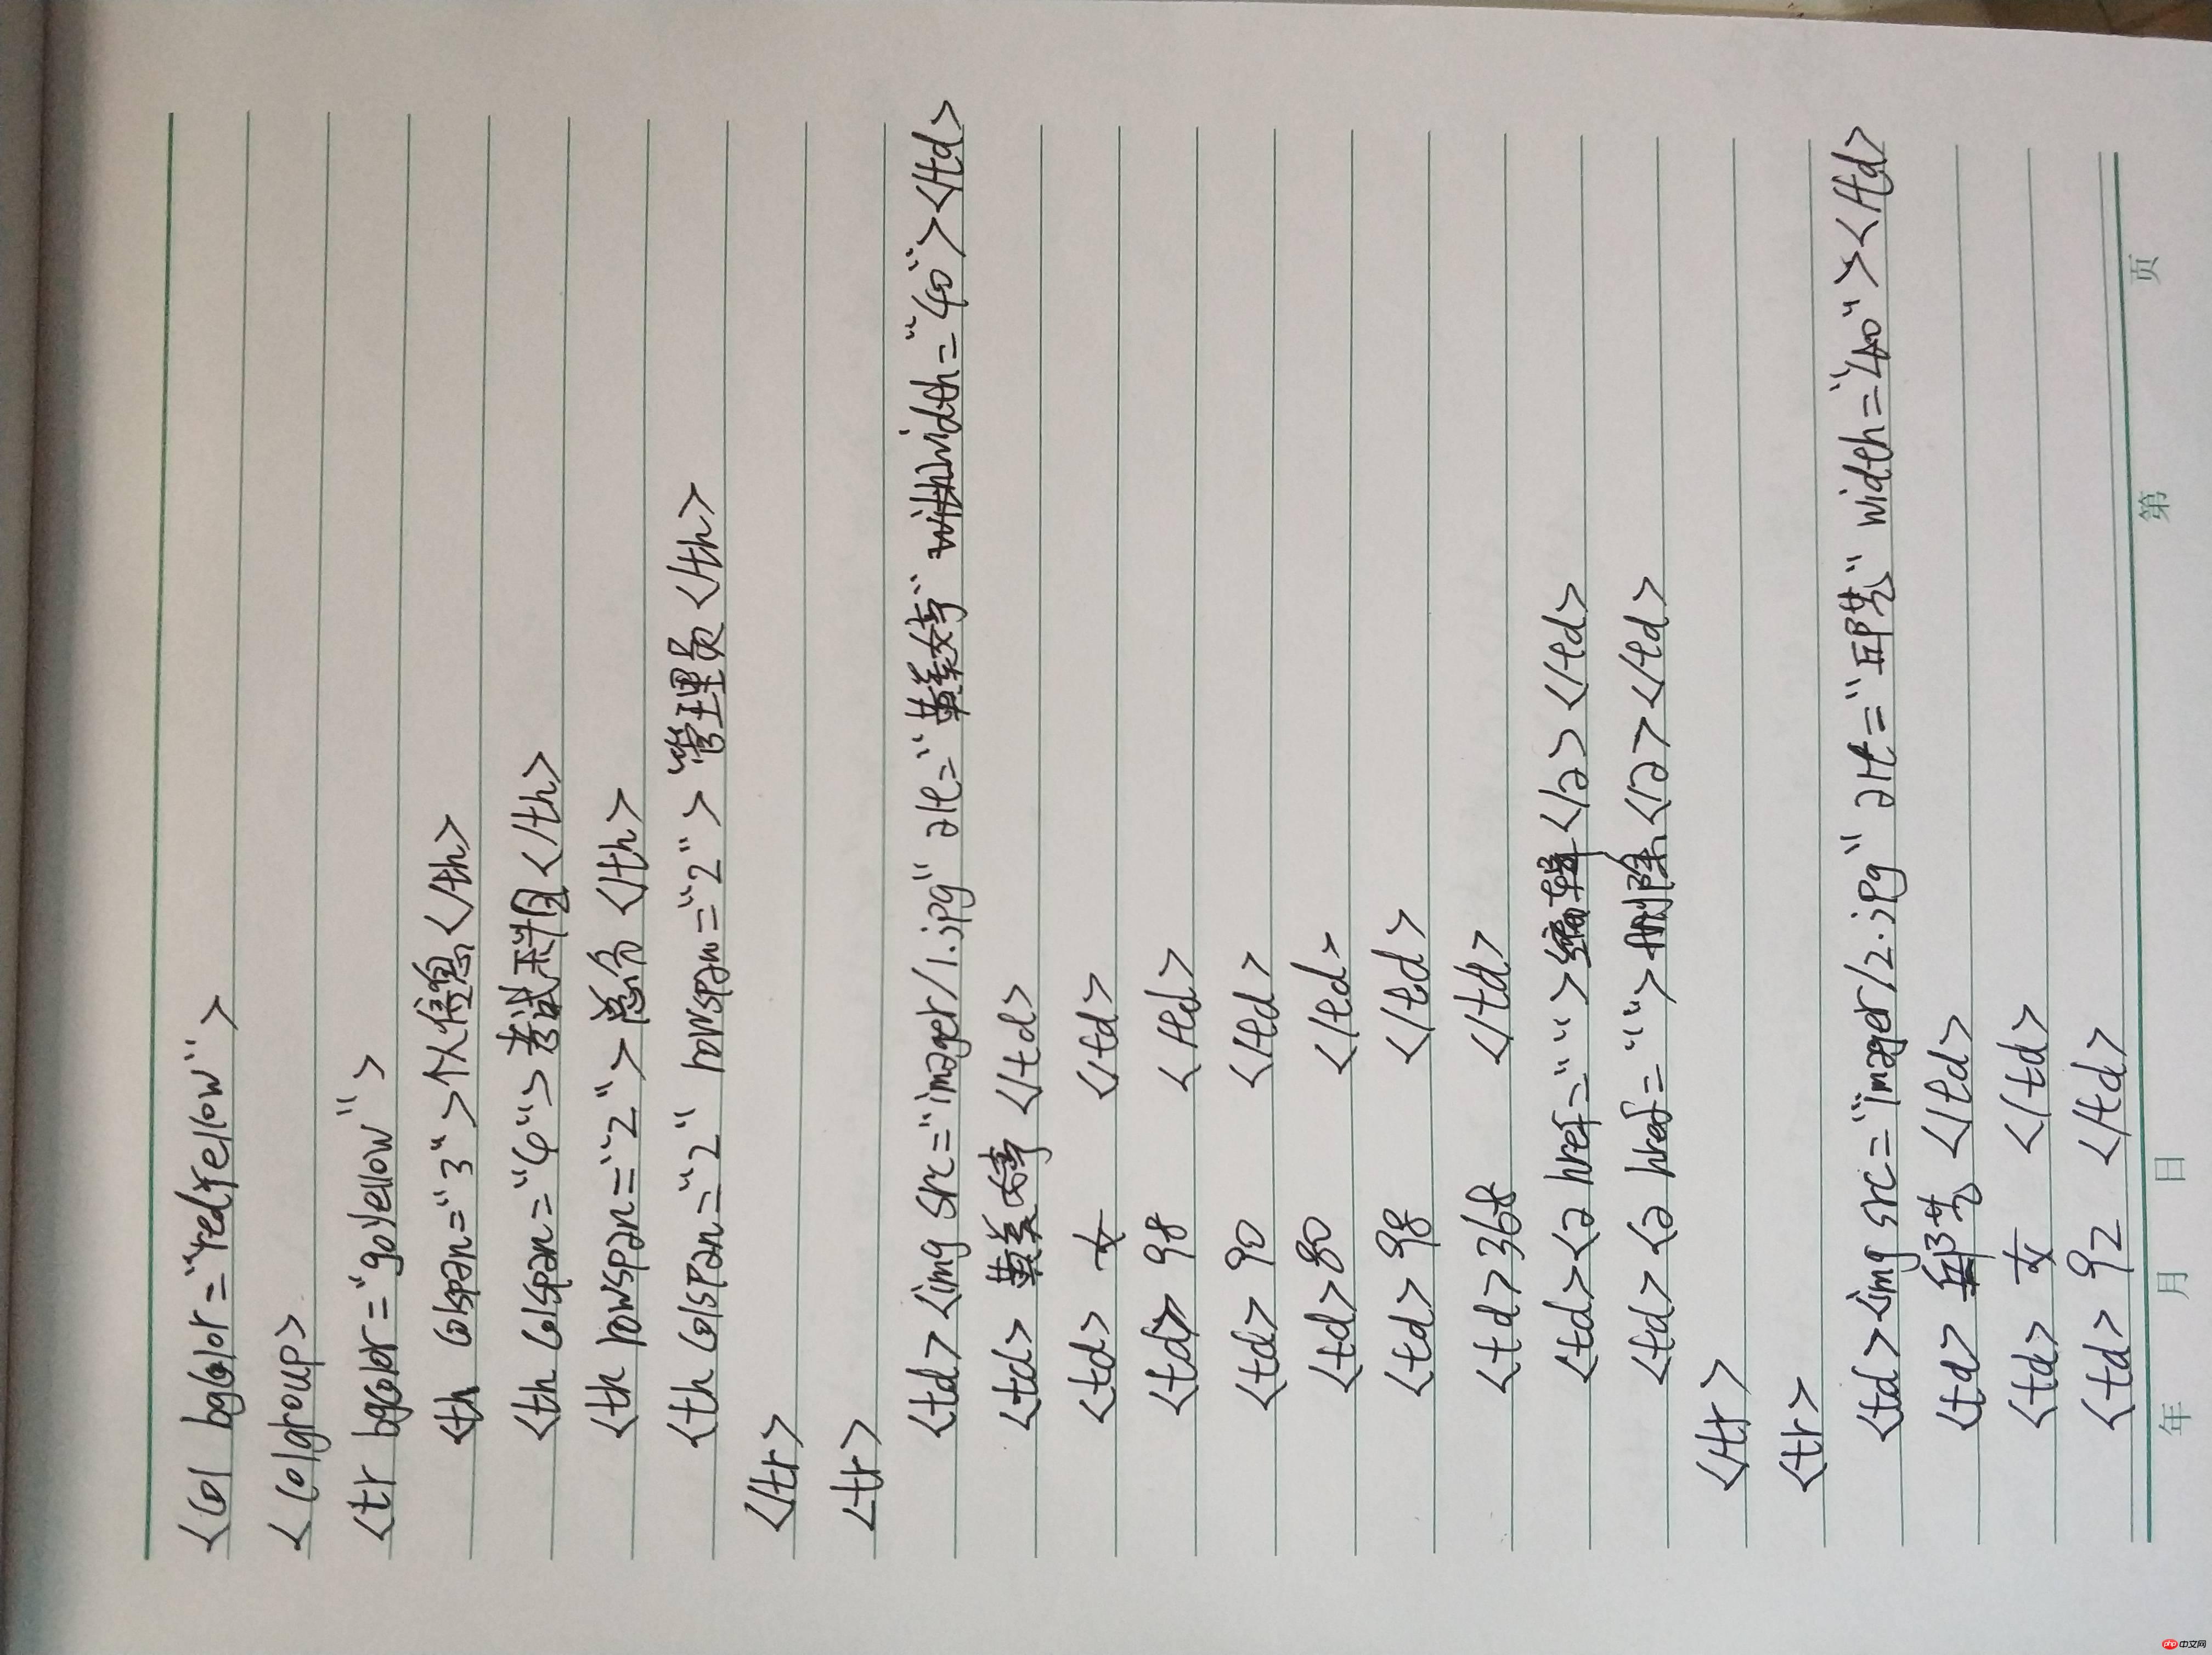 <col bgcolor="redyellow">
<colgroup>
<tr bgcolor="goyellow">
<th colspan="3">个人信息</th>
<th colspan="4">考试科目</th>
<th rowspan="2">总分</th>
<th colspan="2" rowspan="2">管理员</th>
</tr>
<tr>
<td><img src="imager/1.jpg" alt="黄美婷" width="40"></td>
<td>黄美婷</td>
<td>女</td>
<td>98</td>
<td>90</td>
<td>80</td>
<td>98</td>
<td>368</td>
<td><a href="">编辑</a></td>
<td><a href="">删除</a></td>
</tr>
<tr>
<td><img src="imager/2.jpg" alt="邱梵" width="40"></td>
<td></td>
<td>女</td>
<td>92</td>
年 月 日 第 页
php 中文网